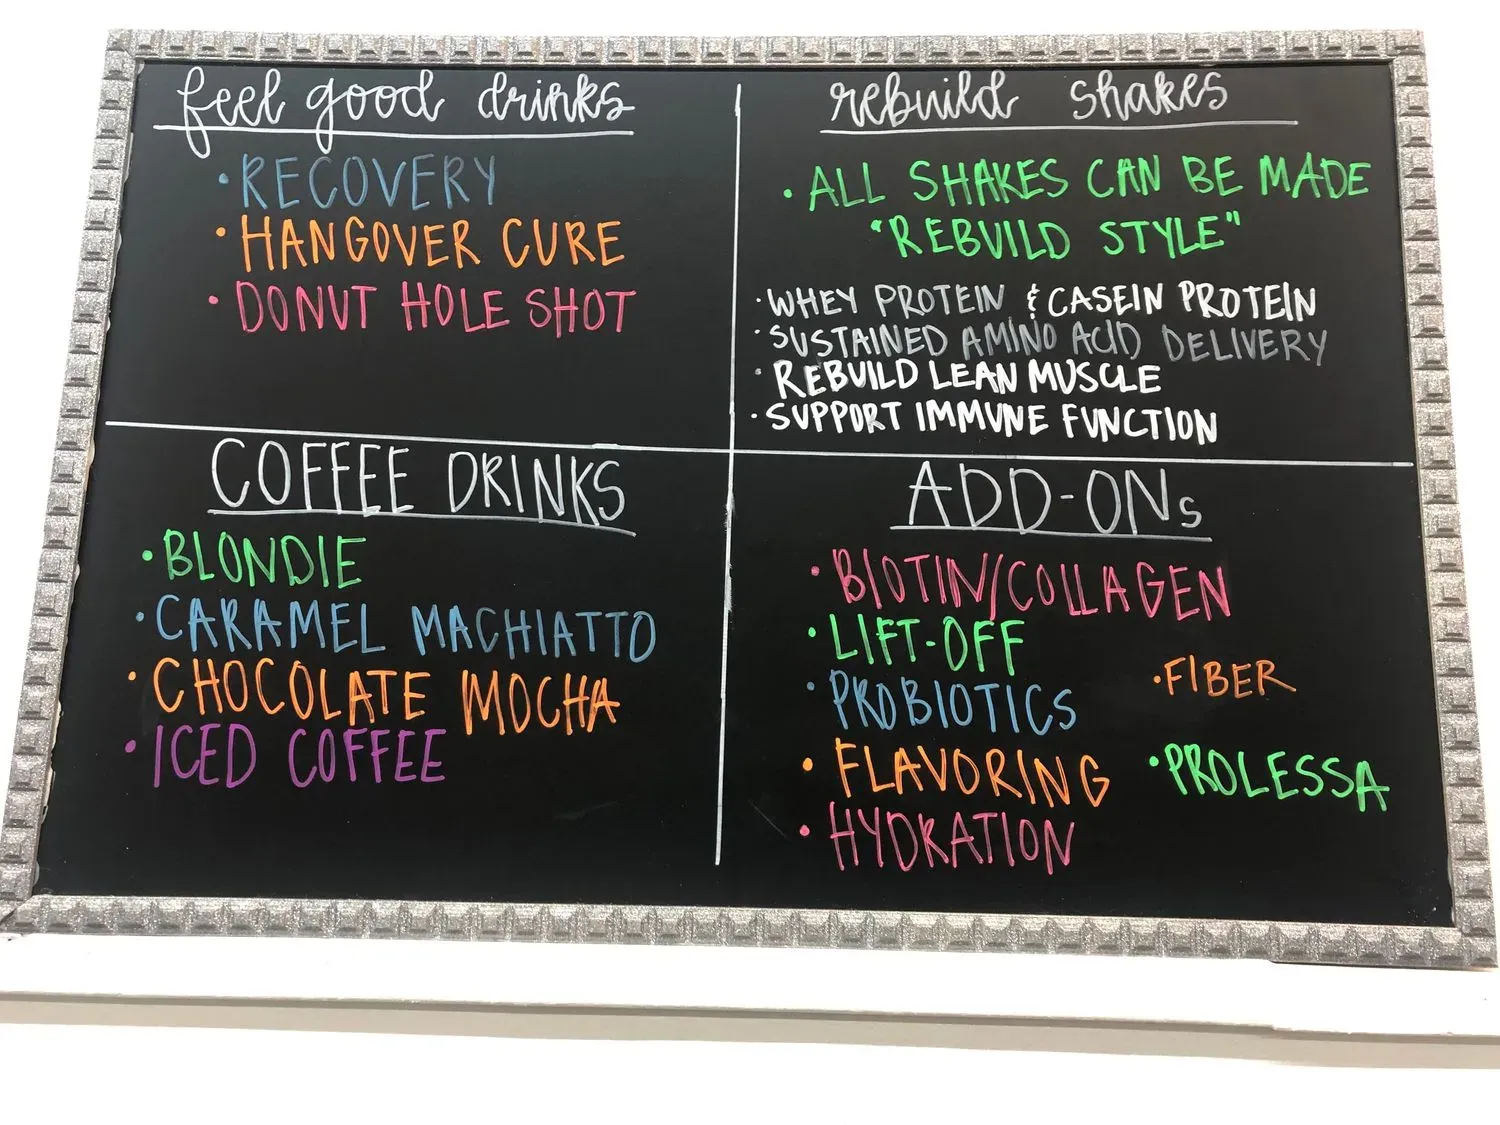 feel good drinks
• RECOVERY
• HANGOVER CURE
• DONUT HOLE SHOT
rebuild shakes
• ALL SHAKES CAN BE MADE
"REBUILD STYLE"
• WHEY PROTEIN & CASEIN PROTEIN
• SUSTAINED AMINO ACID DELIVERY
• REBUILD LEAN MUSCLE
• SUPPORT IMMUNE FUNCTION
COFFEE DRINKS
• BLONDIE
• CARAMEL MACHIATTO
• CHOCOLATE MOCHA
• ICED COFFEE
ADD-ONs
• BIOTIN/COLLAGEN
• LIFT-OFF
• PROBIOTICS
• FLAVORING
• HYDRATION
• FIBER
• PROLESSA